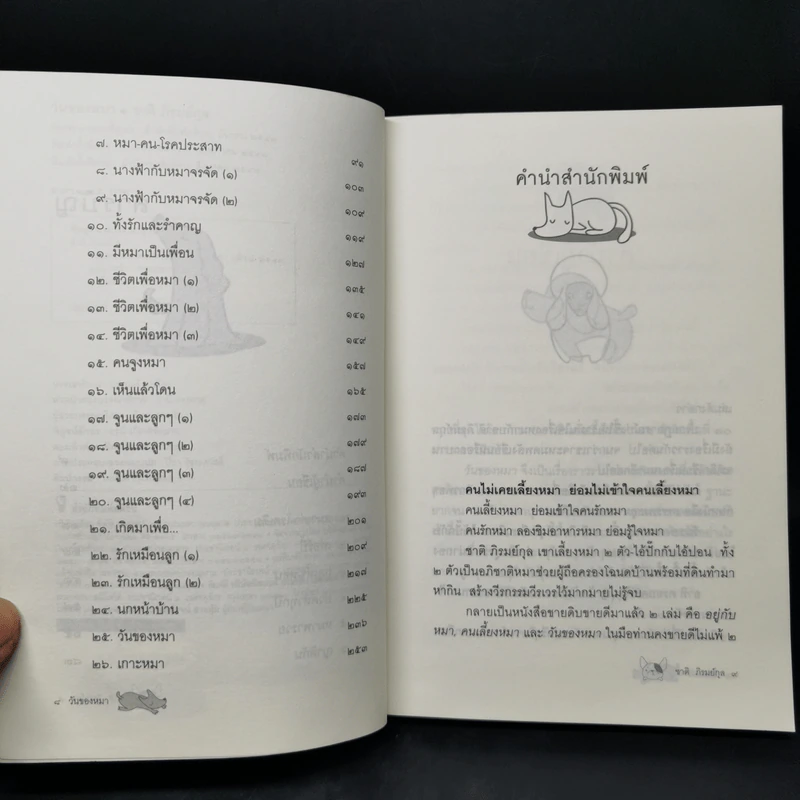 ๗. หมา-คน-โรคประสาท ๙๑
๘. นางฟ้ากับหมาจรจัด (๑) ๑๐๓
๙. นางฟ้ากับหมาจรจัด (๒) ๑๐๙
๑๐. ทั้งรักและรำคาญ ๑๑๙
๑๑. มีหมาเป็นเพื่อน ๑๒๗
๑๒. ชีวิตเพื่อหมา (๑) ๑๓๕
๑๓. ชีวิตเพื่อหมา (๒) ๑๔๑
๑๔. ชีวิตเพื่อหมา (๓) ๑๔๙
๑๕. คนจูงหมา ๑๕๗
๑๖. เห็นแล้วโดน ๑๖๕
๑๗. จูนและลูกๆ (๑) ๑๗๓
๑๘. จูนและลูกๆ (๒) ๑๗๙
๑๙. จูนและลูกๆ (๓) ๑๘๗
๒๐. จูนและลูกๆ (๔) ๑๙๓
๒๑. เกิดมาเพื่อ... ๒๐๑
๒๒. รักเหมือนลูก (๑) ๒๐๙
๒๓. รักเหมือนลูก (๒) ๒๑๗
๒๔. นกหน้าบ้าน ๒๒๕
๒๕. วันของหมา ๒๓๖
๒๖. เกาะหมา ๒๕๓
๘ วันของหมา
คำนำสำนักพิมพ์
คนไม่เคยเลี้ยงหมา ย่อมไม่เข้าใจคนเลี้ยงหมา
คนเลี้ยงหมา ย่อมเข้าใจคนรักหมา
คนรักหมา ลองชิมอาหารหมา ย่อมรู้ใจหมา
ชาติ ภิรมย์กุล เขาเลี้ยงหมา ๒ ตัว-ไอ้ปั๊กกับไอ้ปอน ทั้ง
๒ ตัวเป็นอภิชาติหมาช่วยผู้ถือครองโฉนดบ้านพร้อมที่ดินทำมา
หากิน สร้างวีรกรรมวีรเวรไว้มากมายไม่รู้จบ
กลายเป็นหนังสือขายดิบขายดีมาแล้ว ๒ เล่ม คือ อยู่กับ
หมา, คนเลี้ยงหมา และ วันของหมา ในมือท่านคงขายดีไม่แพ้ ๒
ชาติ ภิรมย์กุล ๙